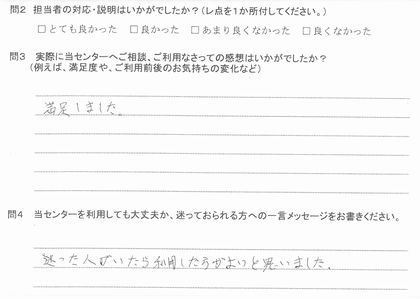 問2 担当者の対応・説明はいかがでしたか?(レ点を1か所付してください。)
□とても良かった □良かった □あまり良くなかった □良くなかった
問3 実際に当センターへご相談、ご利用なさっての感想はいかがでしたか?
(例えば、満足度や、ご利用前後のお気持ちの変化など)
満足しました。
問4 当センターを利用しても大丈夫か、迷っておられる方への一言メッセージをお書きください。
迷った人がいたら利用したらがよいと思いました。